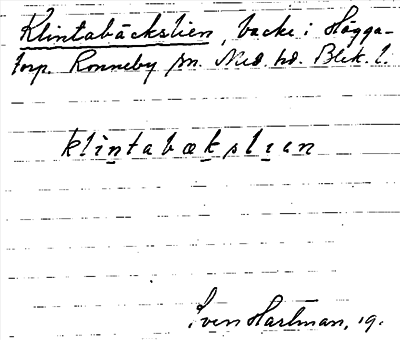 Klintabäckslien, backe i Högga-
torp. Ronneby sn. Med. hd. Blek. l.
klintabækslien
Sven Hartman, 19.